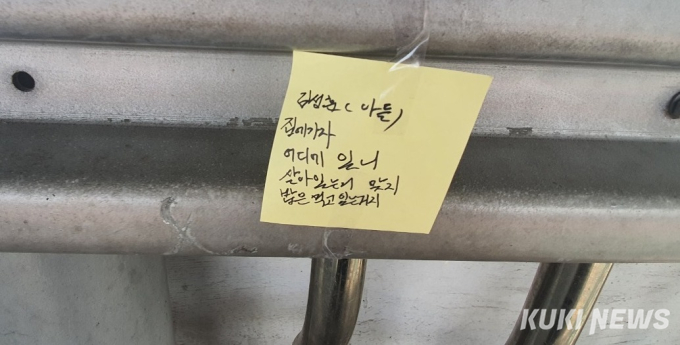 김섭춘(아들)
집에가자
어디에 있니
살아있는거 맞지
밥은 먹고 있는거지
KUKI NEWS